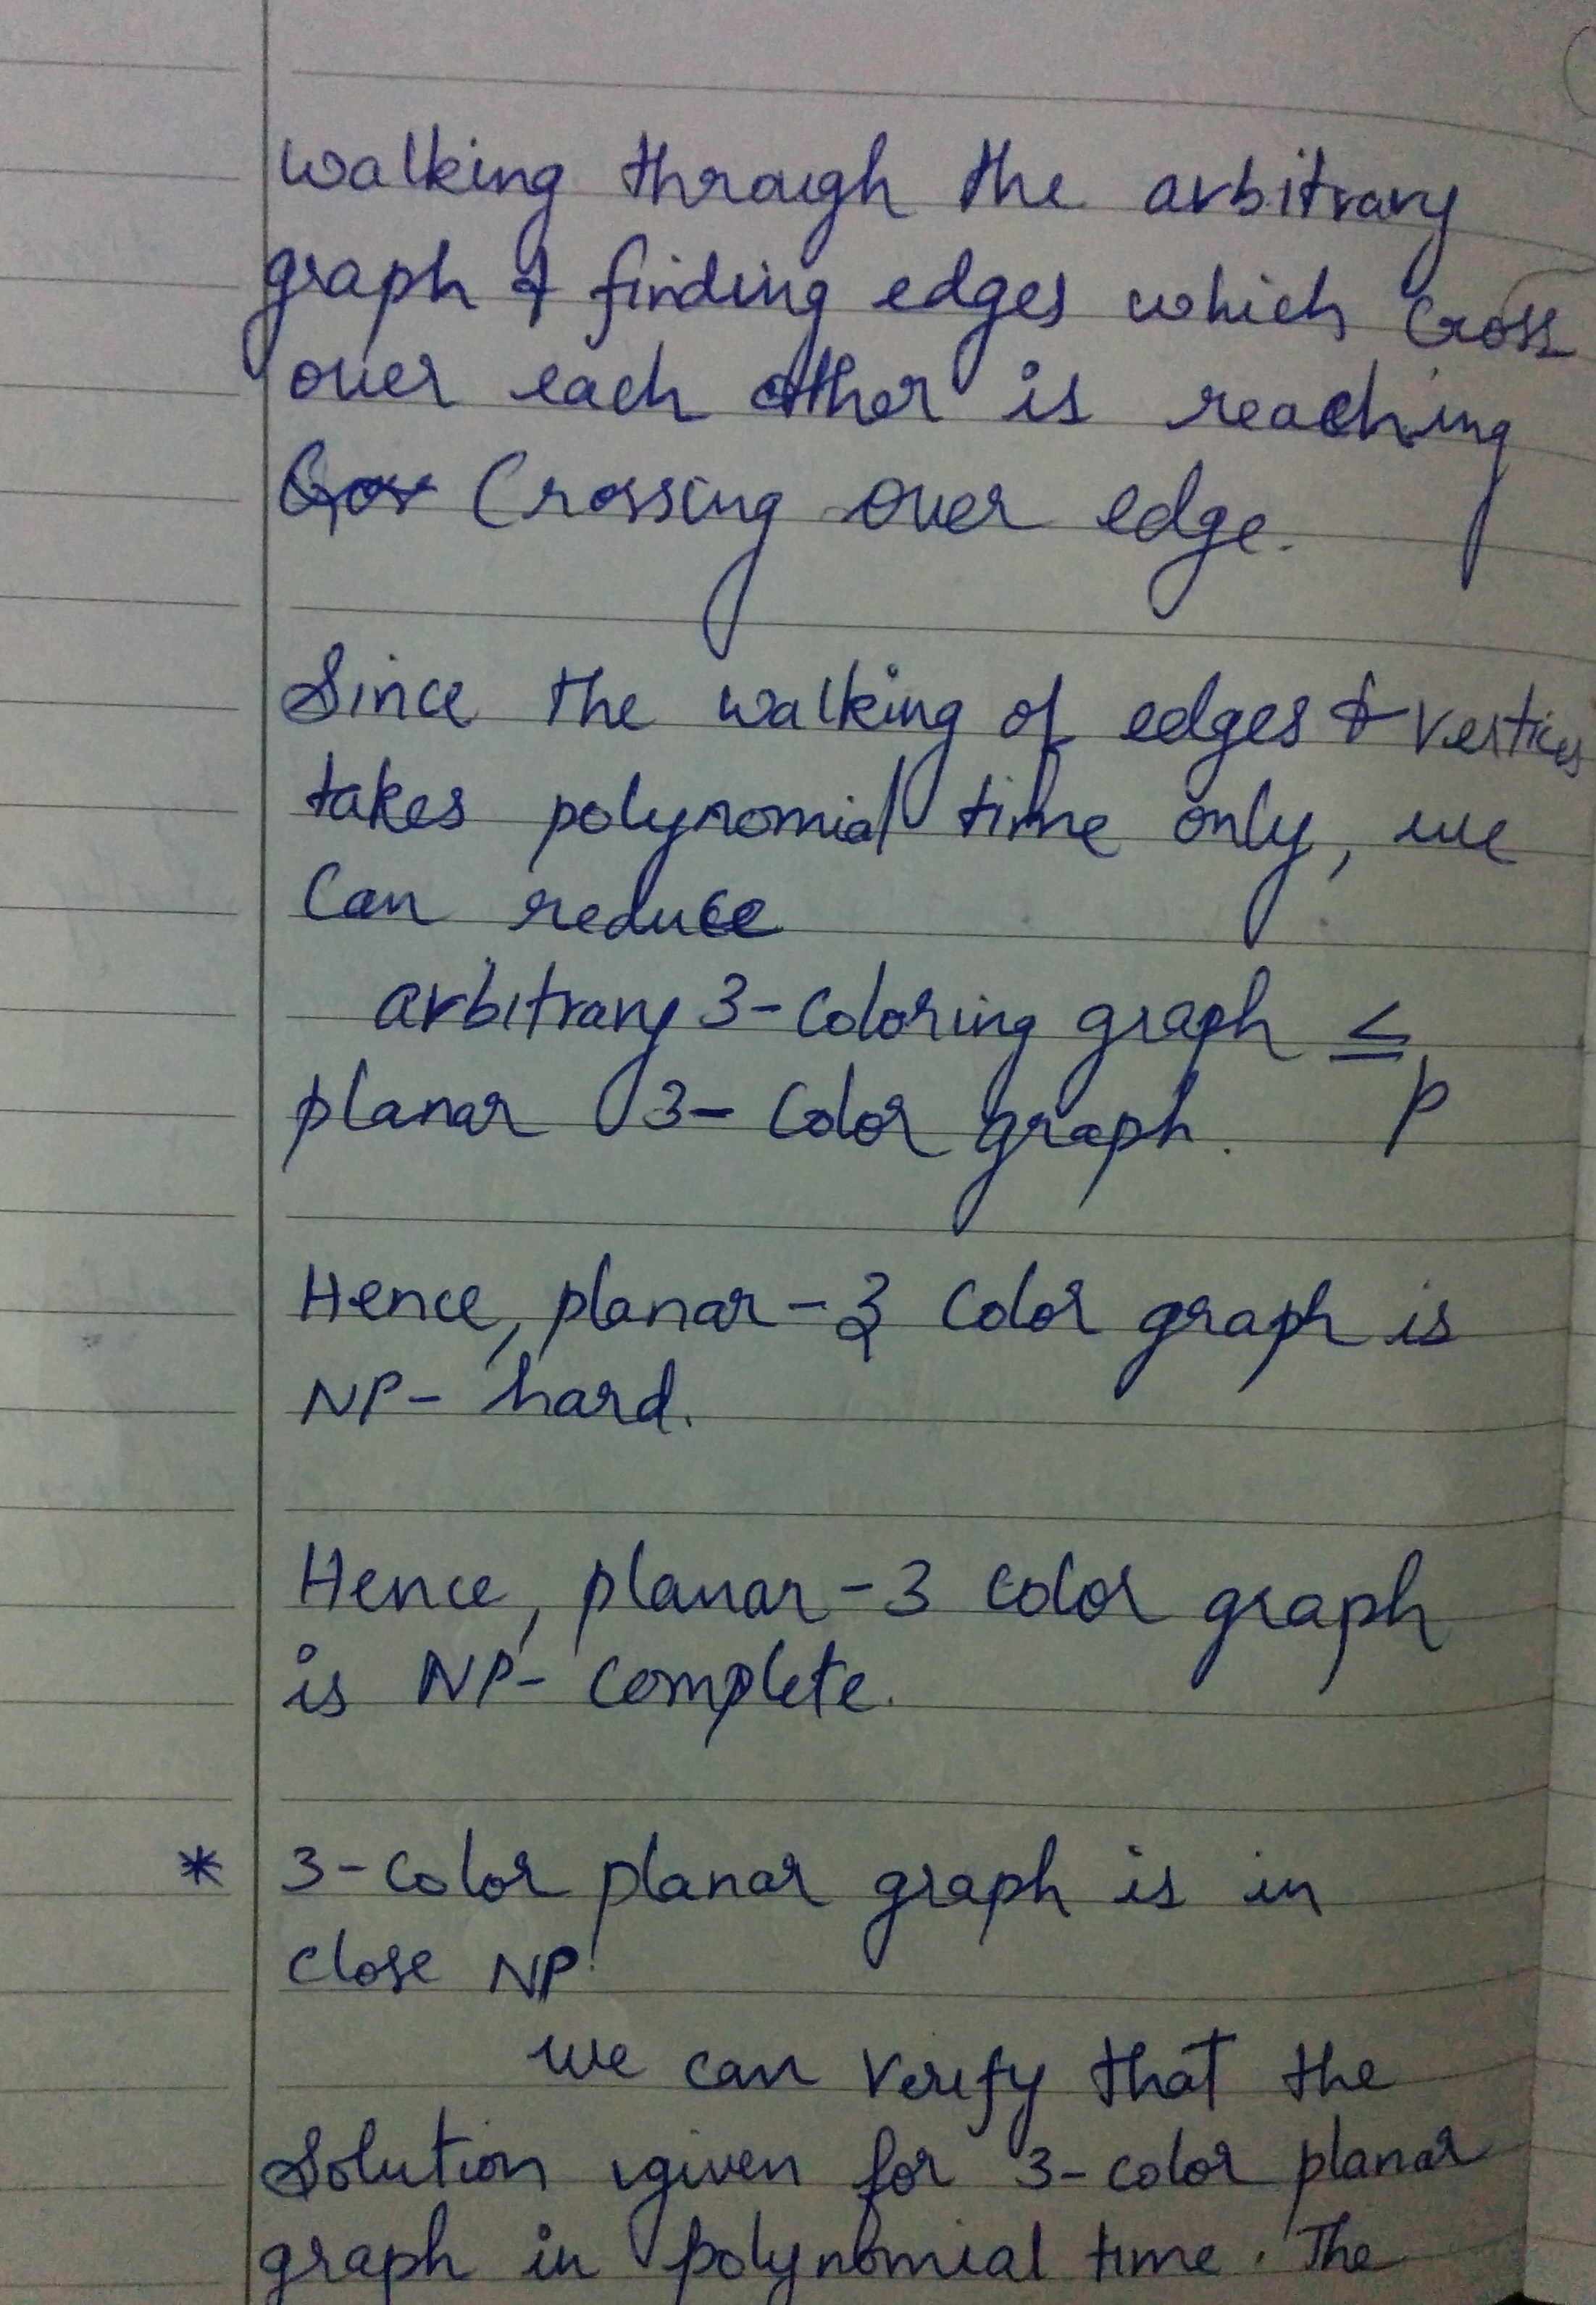 walking through the arbitrary
graph & finding edges which cross
over each other is reaching
Crossing over edge.
Since the walking of edges & vertices
takes polynomial time only, we
can reduce
arbitrary 3-coloring graph ≤p
planar 3- color graph.
Hence, planar-3 color graph is
NP- hard.
Hence, planar-3 color graph
is NP- complete.
* 3-color planar graph is in
close NP
we can verify that the
solution given for 3-color planar
graph in polynomial time. The